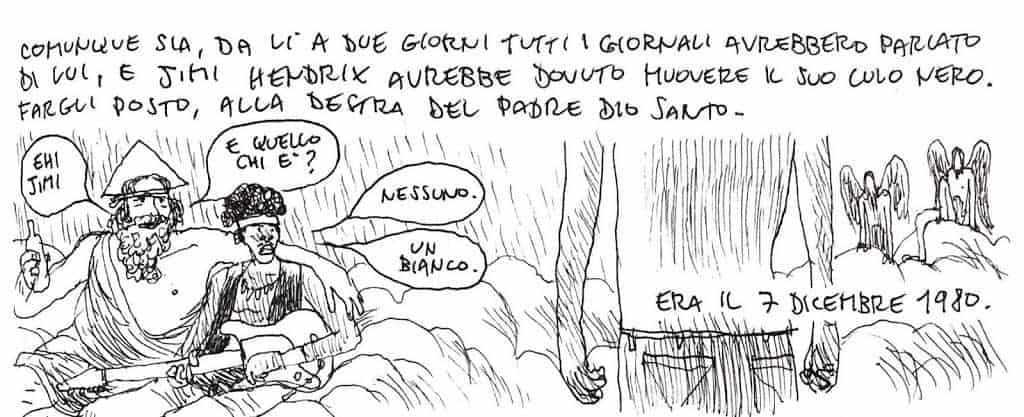 COMUNQUE SIA, DA LÌ A DUE GIORNI TUTTI I GIORNALI AVREBBERO PARLATO
DI LUI, E JIMI HENDRIX AVREBBE DOVUTO MUOVERE IL SUO CULO NERO.
FARGLI POSTO, ALLA DESTRA DEL PADRE DIO SANTO.
EHI
JIMI
E QUELLO
CHI È?
NESSUNO.
UN
BIANCO.
ERA IL 7 DICEMBRE 1980.